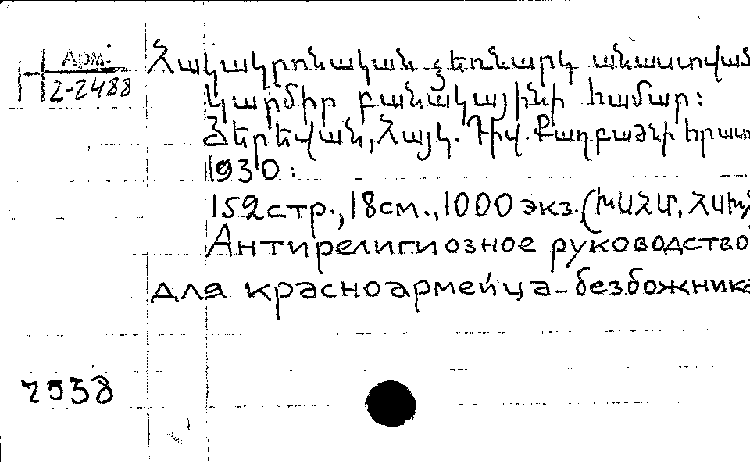 Арм.
2-2488
Հակակրոնական ձեռնարկ անաստված
կարմիր բանակայինի համար:
Յերեվան, Հայկ. Դիվ. Քաղբաժնի հրատ
1930:
152 стр., 18 см., 1000 экз. (ԽԱՀՄ, ՀԱԽՀ
Антирелигиозное руководство
для красноармейца-безбожника
7938